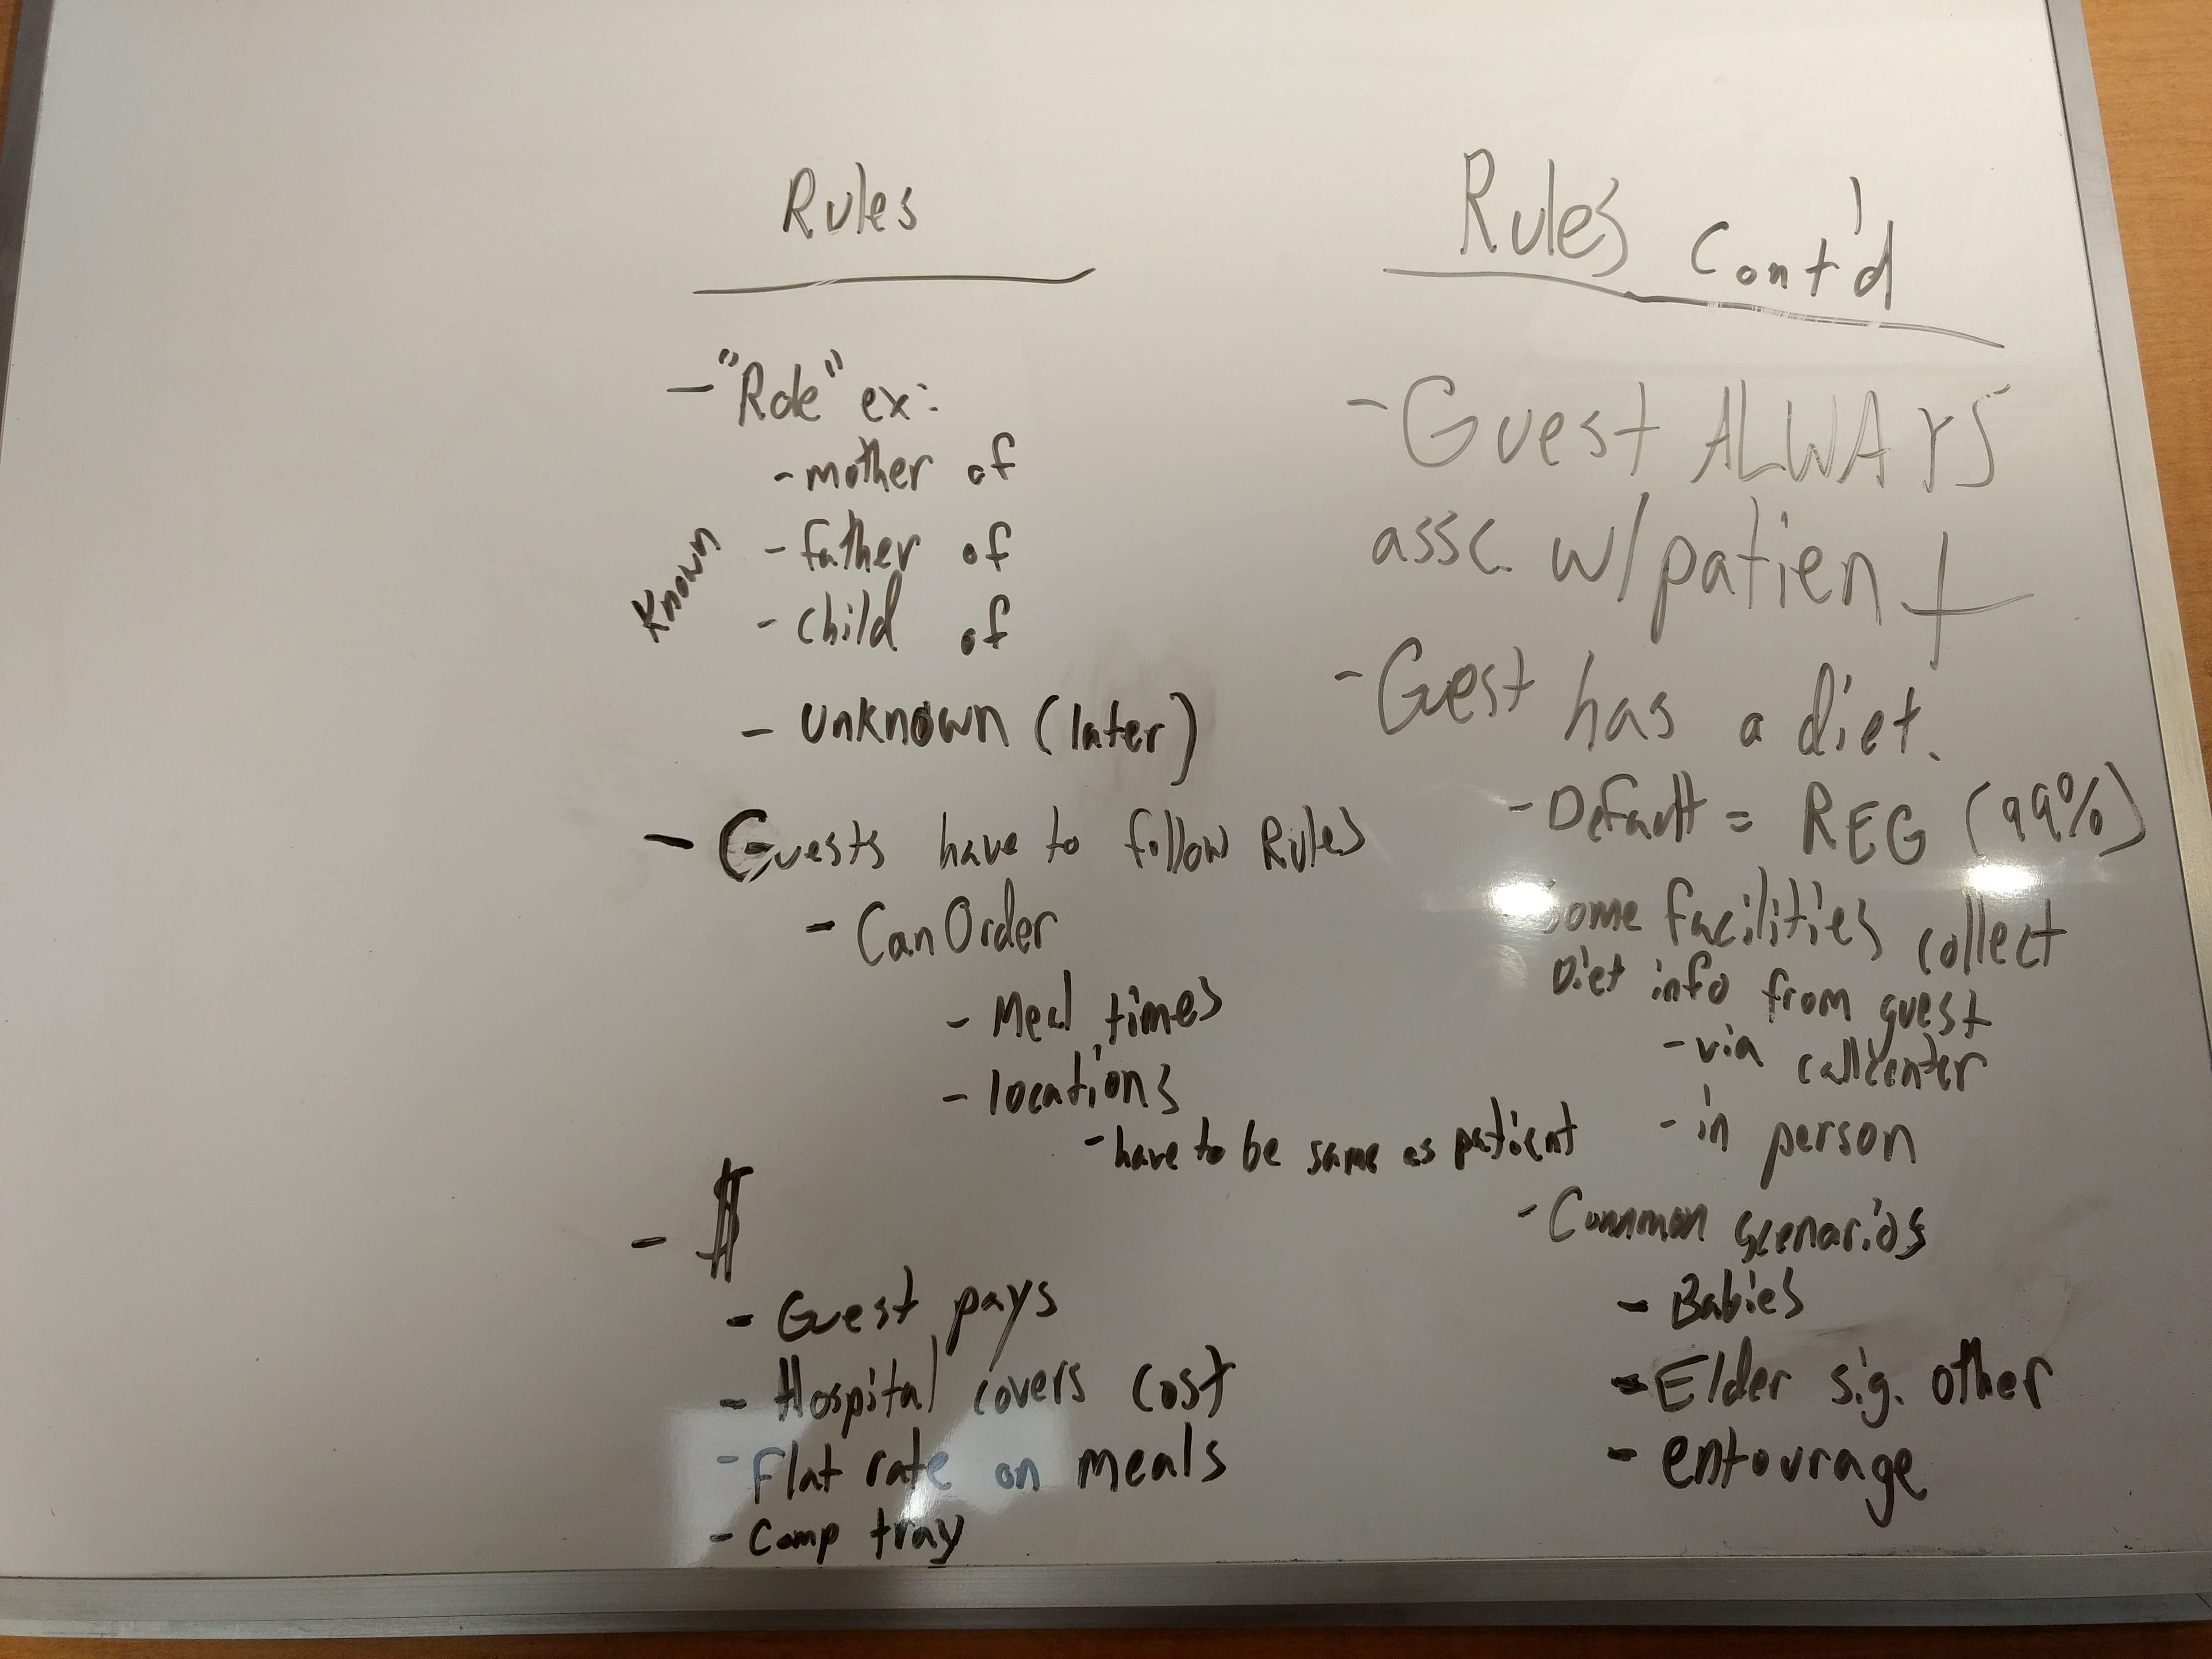 Rules
- "Role" ex:
- mother of
- father of
- child of
Known
- unknown (later)
- Guests have to follow Rules
- Can Order
- Meal times
- locations
- have to be same as patient
- $
- Guest pays
- Hospital covers cost
- Flat rate on meals
- Comp tray
Rules Cont'd
- Guest ALWAYS
assc. w/patient
- Guest has a diet.
- Default = REG (99%)
Some facilities collect
Diet info from guest
- via callcenter
- in person
- Common scenarios
- Babies
- Elder sig. other
- entourage